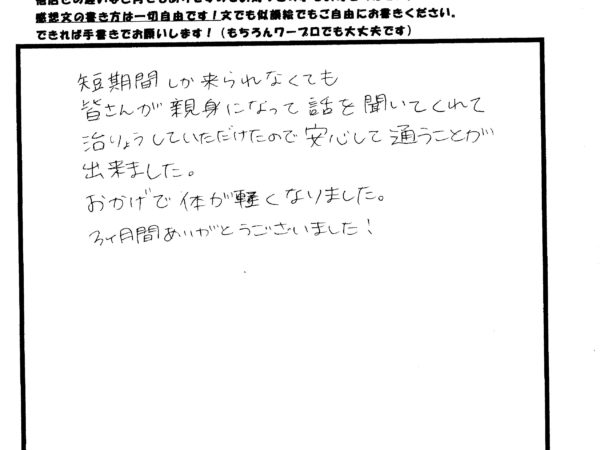 感想文の書き方は一切自由です！文でも似顔絵でもご自由にお書きください。
できれば手書きでお願いします！（もちろんワープロでも大丈夫です）
短期間しか来られなくても
皆さんが親身になって話を聞いてくれて
治りょうしていただけたので安心して通うことが
出来ました。
おかげで体が軽くなりました。
3ヶ月間ありがとうございました！